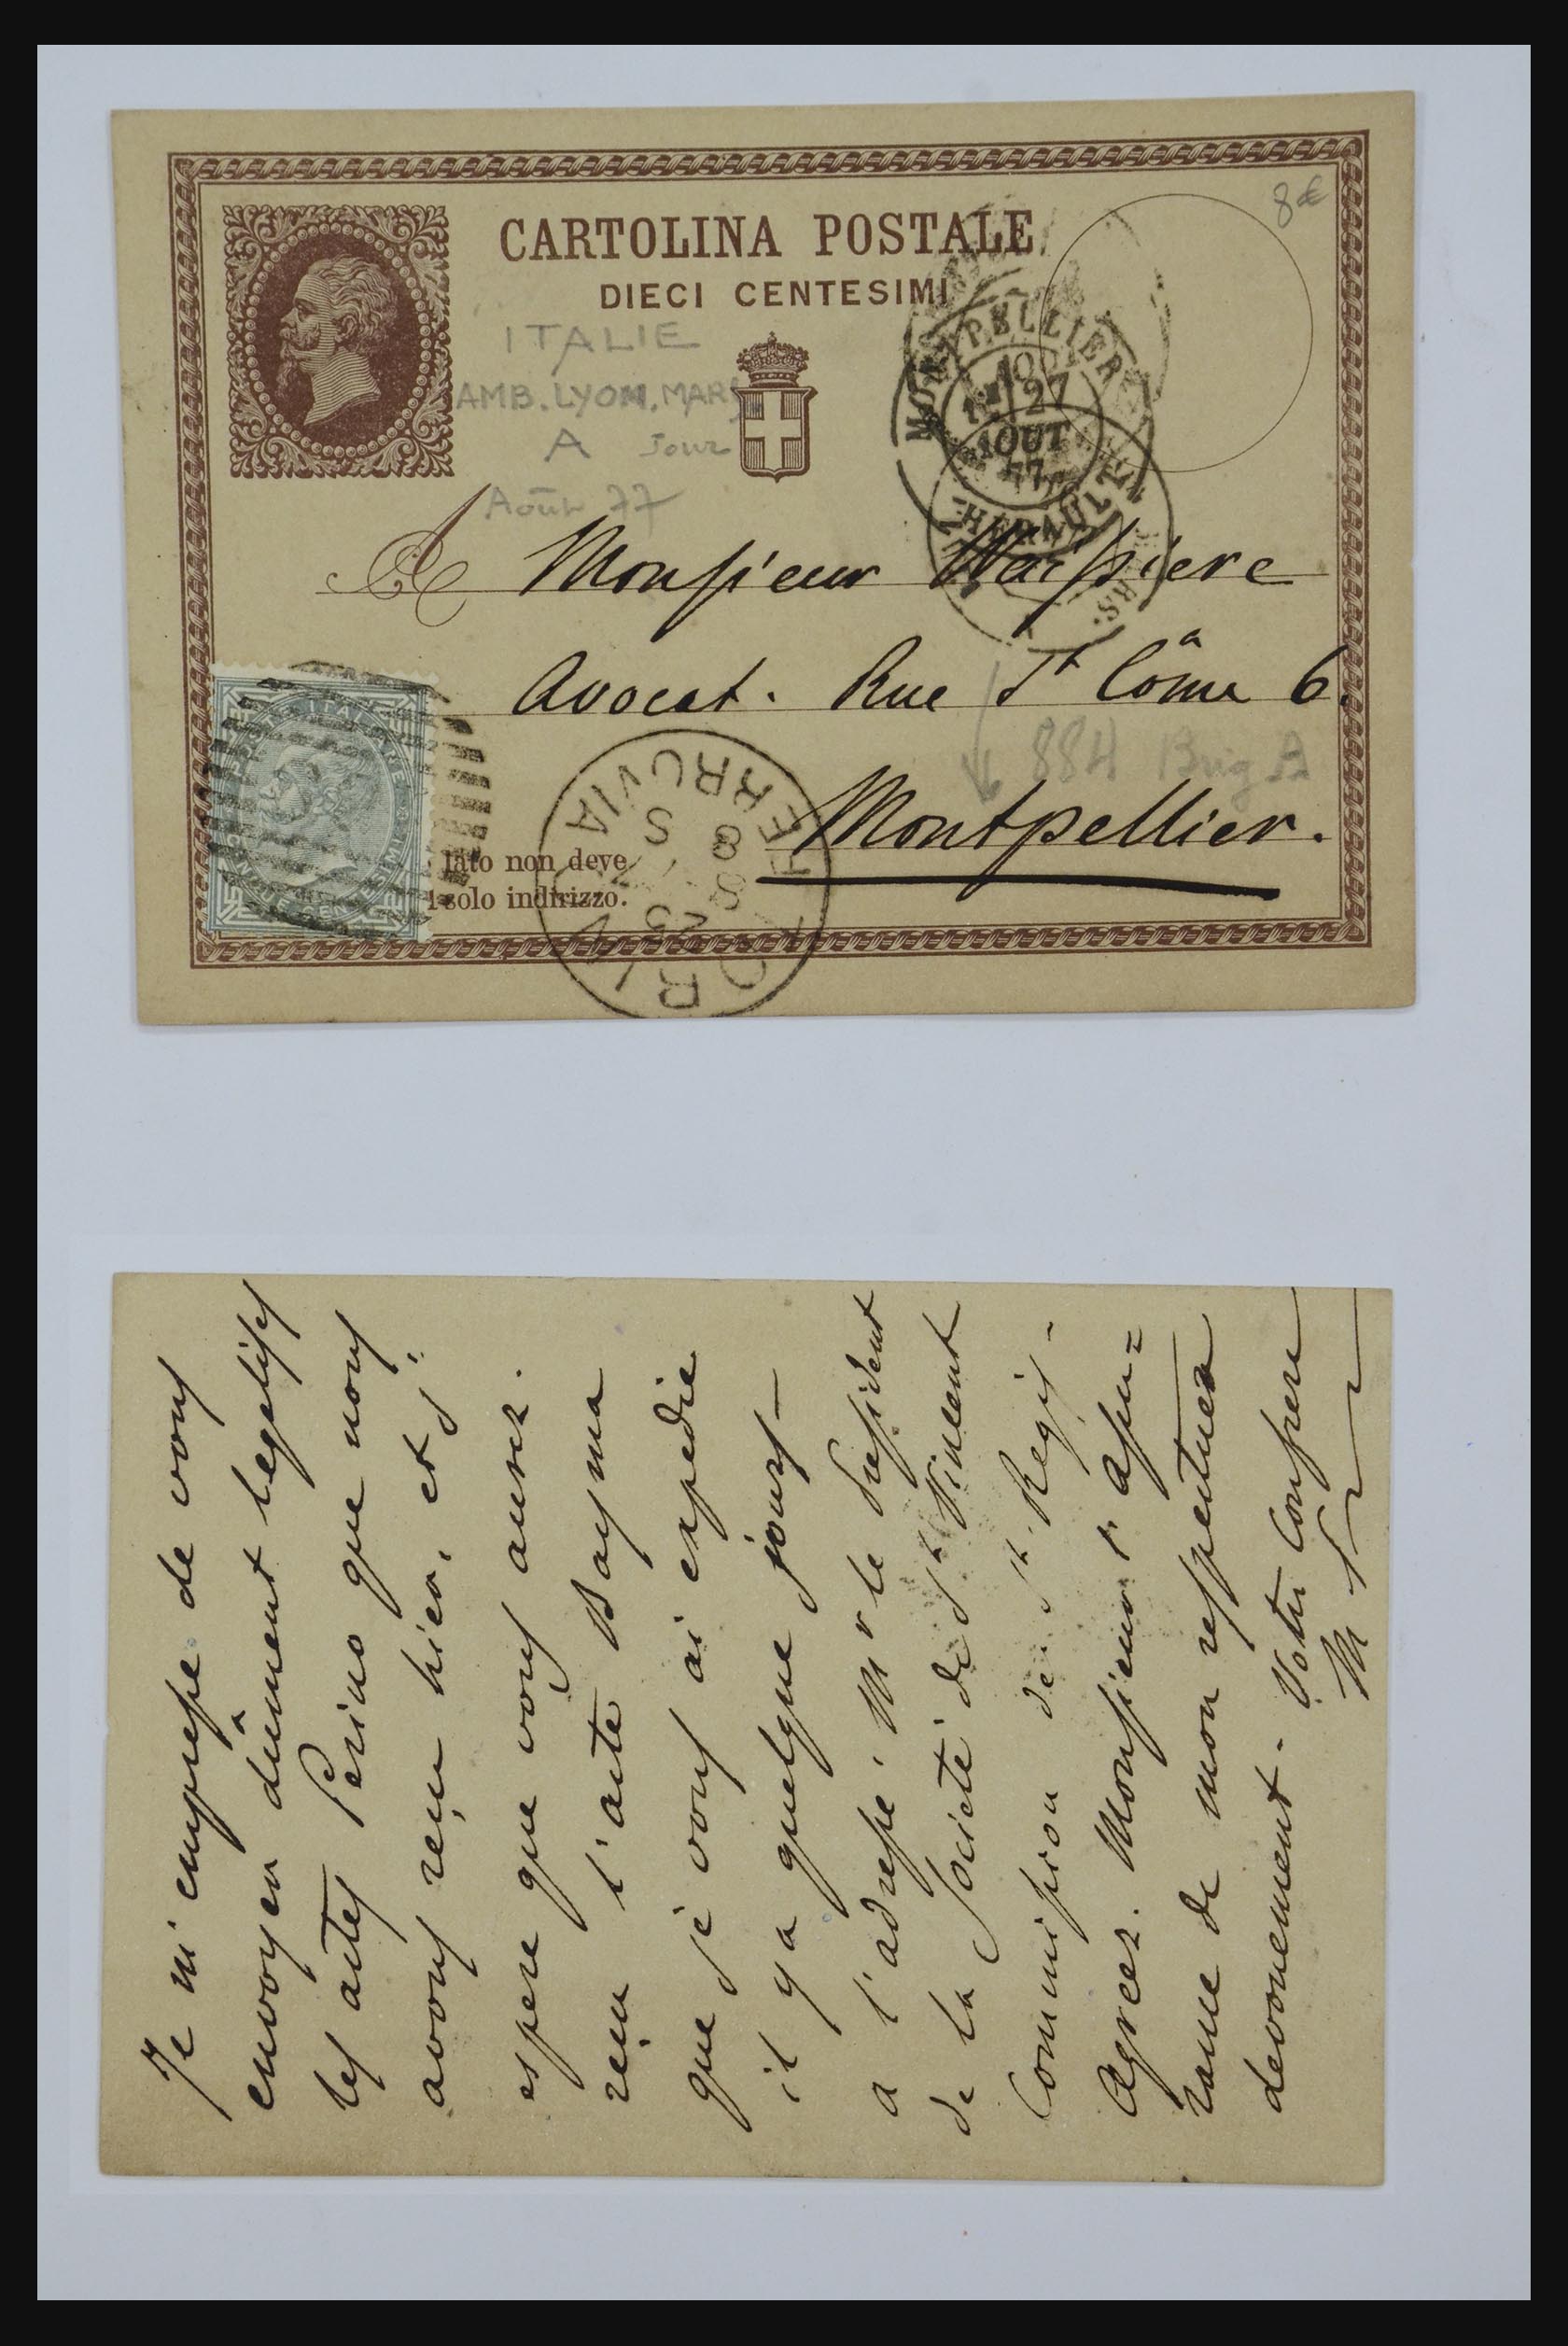 CARTOLINA POSTALE
DIECI CENTESIMI
8 €
ITALIE
AMB. LYON. MARS
A Jour
Août 77
MONTPELLIER
27
AOUT
77
HERAULT
A Monsieur
Avocat. Rue St Côme 6.
884 Brig A
Montpellier.
lato non deve
l solo indirizzo.
TORINO
FERROVIA
Je m'empresse de vous
envoyer dûment legalisés
les actes Perino que nous
avons reçu hier, et j'
espere que vous aurez
reçu l'acte Bayma
que je vous ai expedié
il y a quelque jours –
a l'adresse. Mr le President
de la Societé de St Vincent
Commission de St Regis –
Agreez. Monsieur l'assu=
rance de mon respectueux
devouement. Votre Confrere